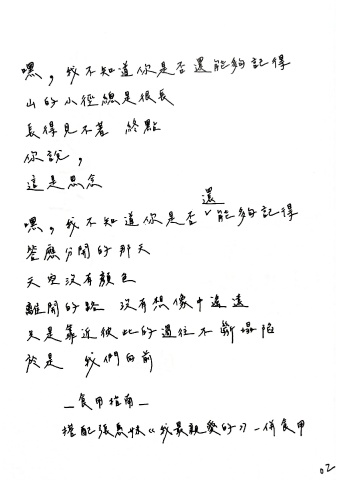 嘿，我不知道你是否還能夠記得
山的小徑總是很長
長得見不著 終點
你說，
這是思念
嘿，我不知道你是否還能夠記得
答應分開的那天
天空沒有顏色
離開的路 沒有想像中遙遠
只是靠近彼此的過往不斷塌陷
於是 我們向前
—食用指南—
搭配張惠妹《我最親愛的》一併食用
02